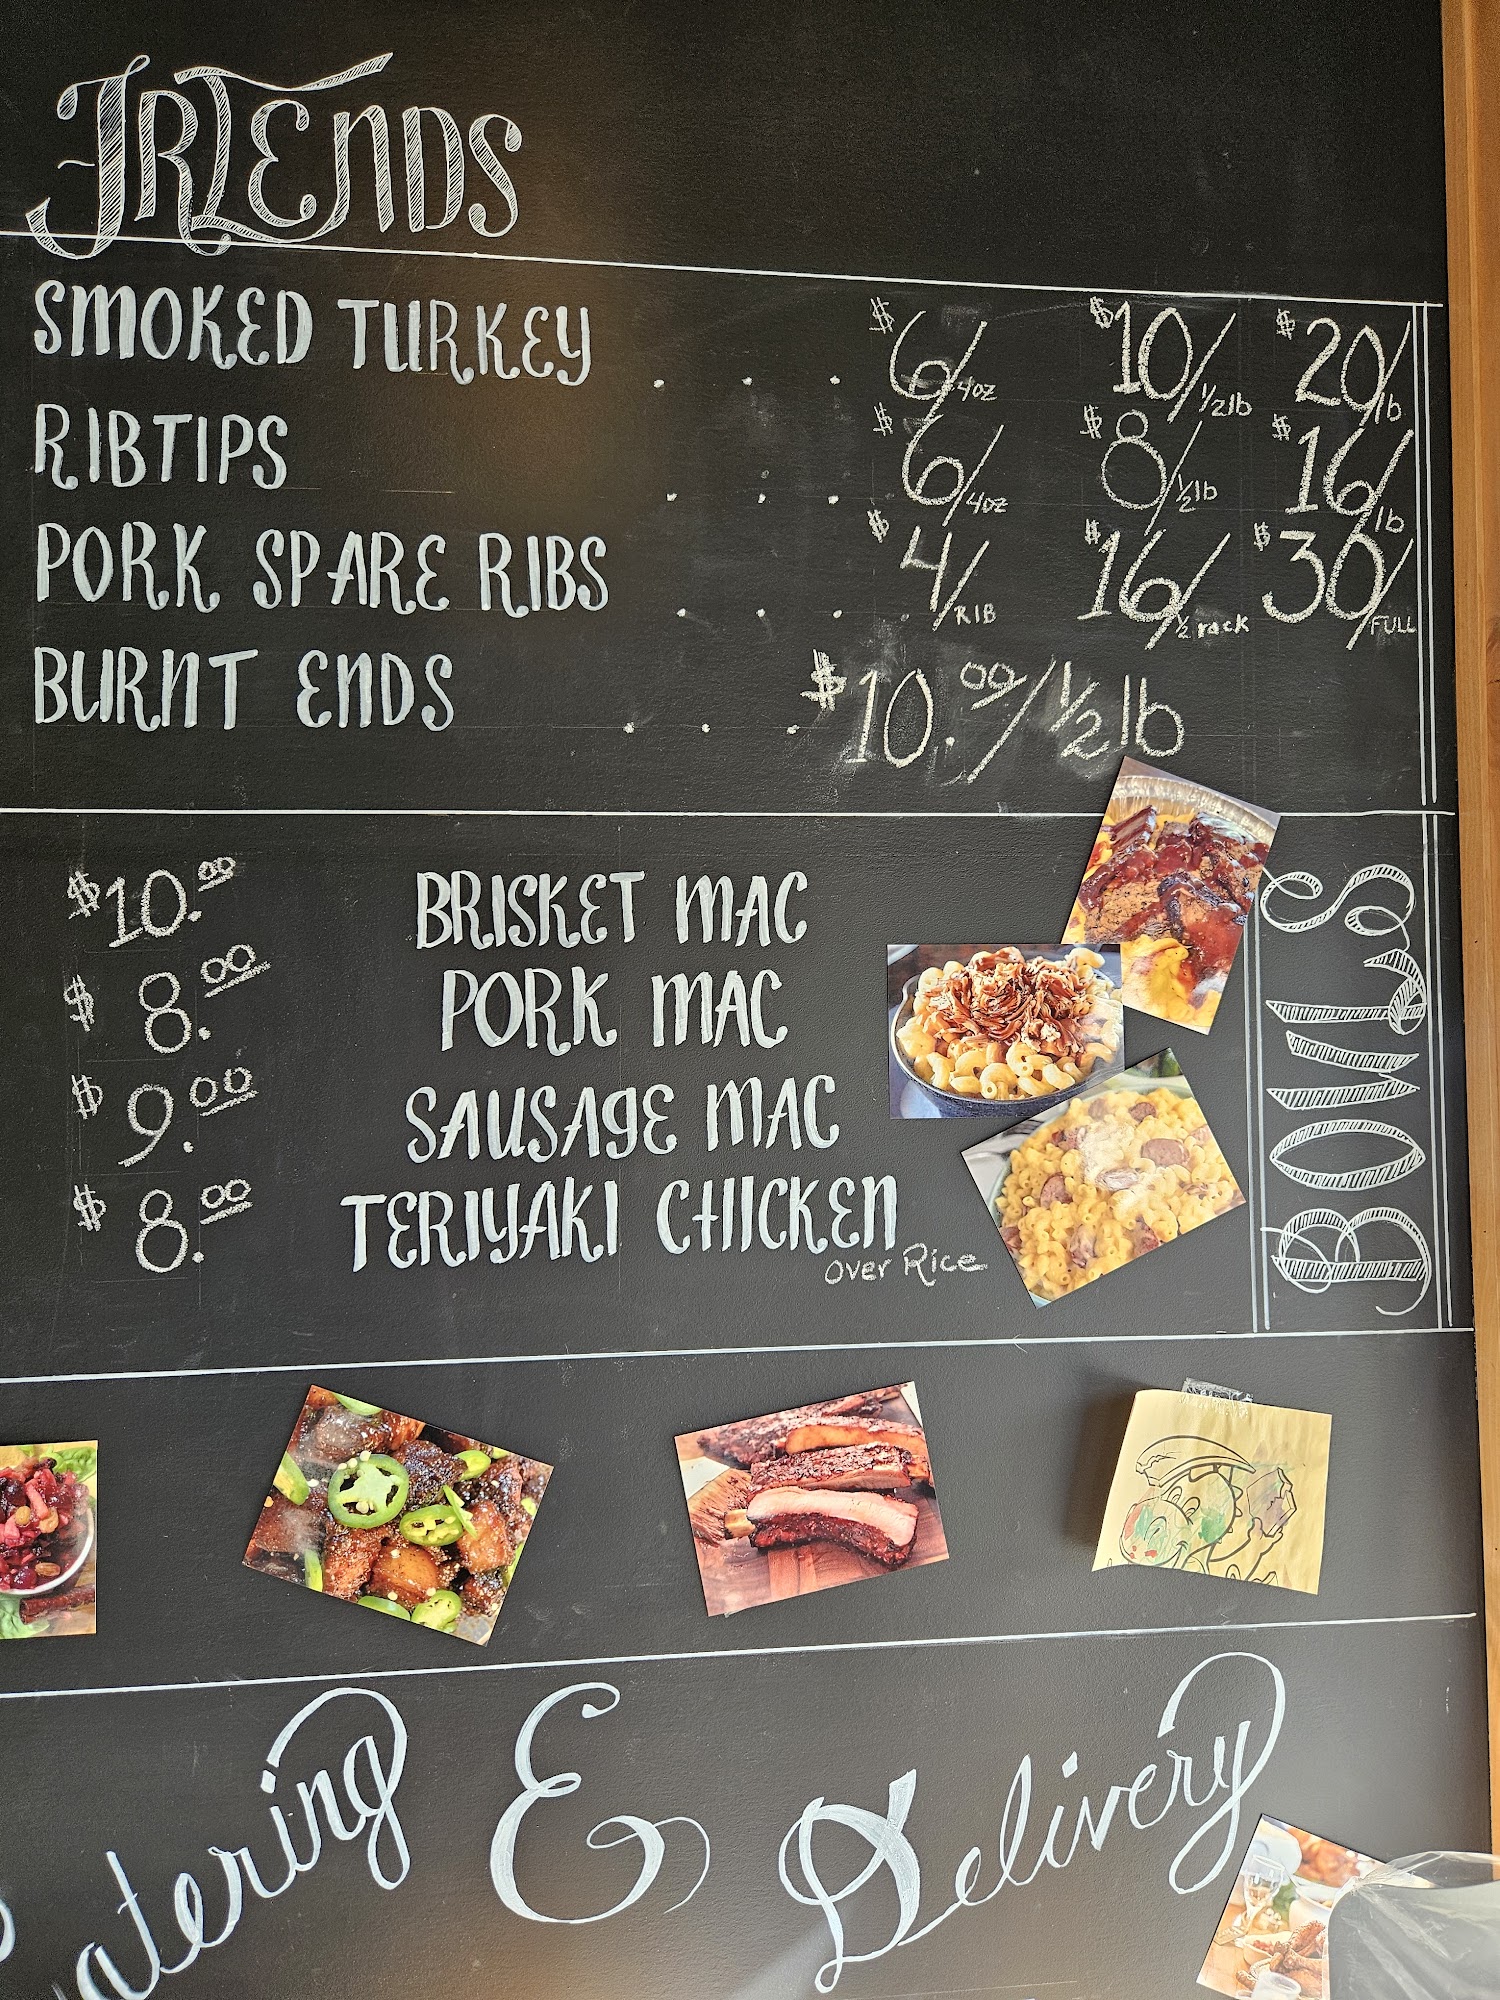 FRIENDS
SMOKED TURKEY . . . $6/4oz $10/½lb $20/lb
RIBTIPS . . . $6/4oz $8/½lb $16/lb
PORK SPARE RIBS . . . . $4/RIB $16/½ rack $30/FULL
BURNT ENDS . . . $10.00/½lb
BOWLS
$10.00 BRISKET MAC
$8.00 PORK MAC
$9.00 SAUSAGE MAC
$8.00 TERIYAKI CHICKEN
over Rice
atering & Delivery